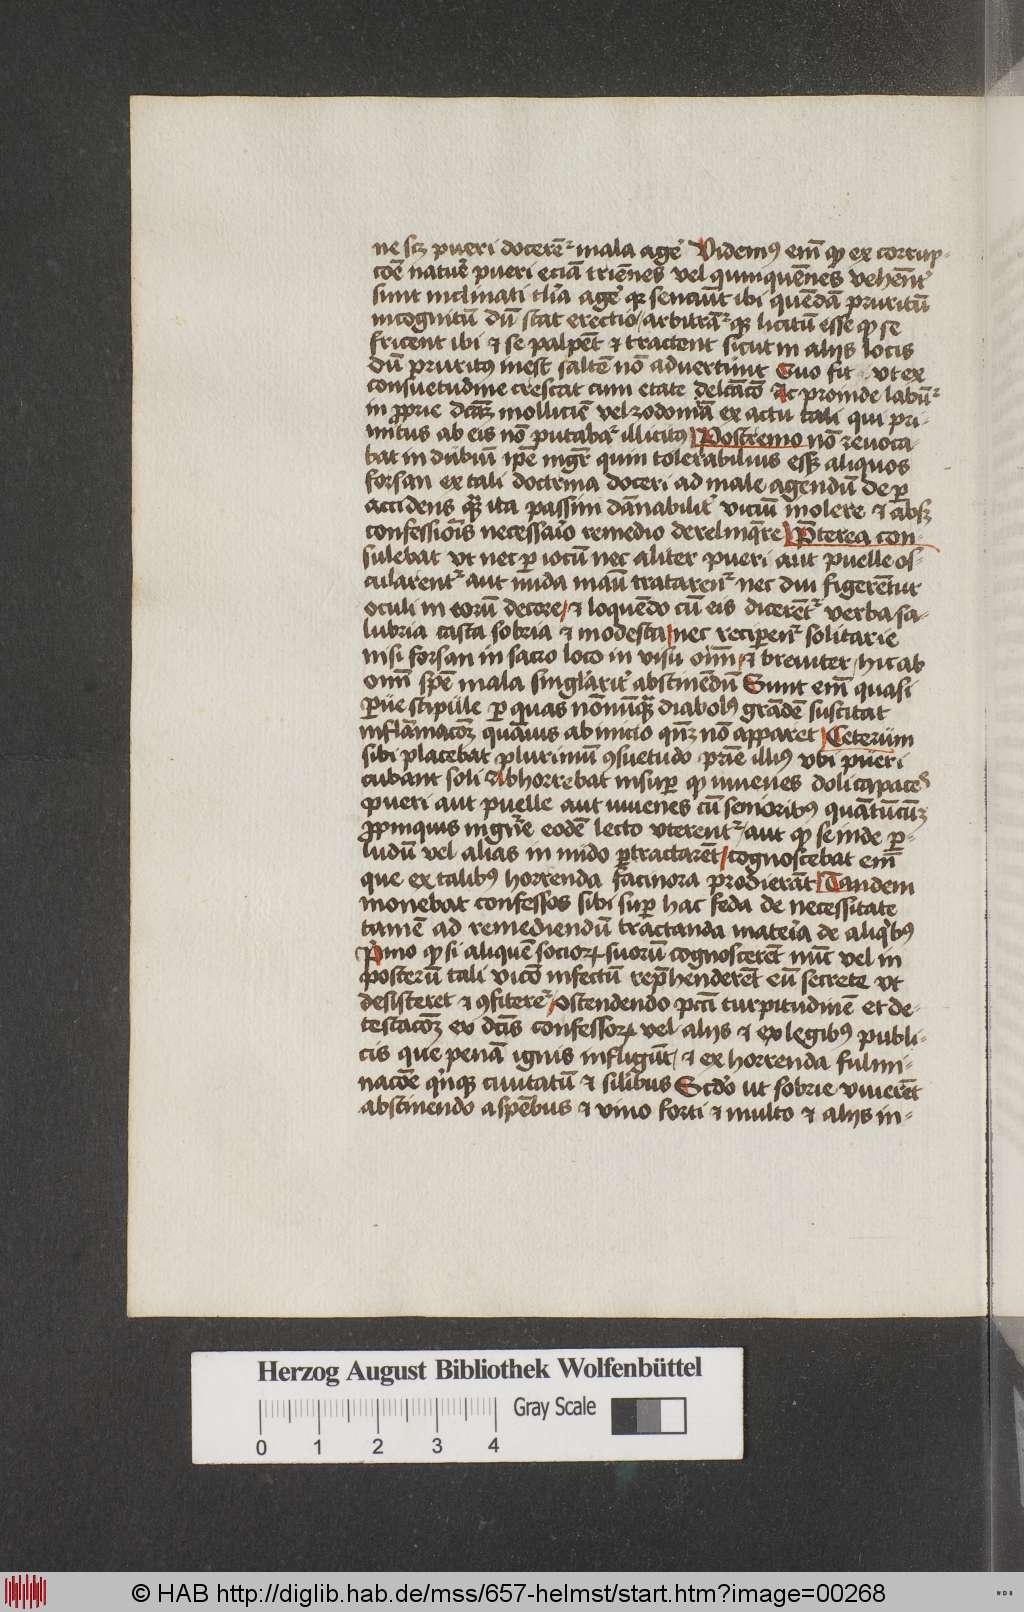 ne scz pueri docerēt mala agē Videmꝰ em̄ qꝫ ex corrup-
cōe naturē pueri eciā triēnes vel quinquēnes vehēnt'
sunt inclinati t agē senciūt ibi quendā pruritū
incognitū dū stat erectio / arbitrāt licitū esse qꝫ se
fricent ibi et se palpēt et tractent sicut in alijs locis
dū pruritꝰ inest saltē nō advertunt Quo fit vt ex
consuetudine crescat cum etate delcācō Ac proinde labūt
in molliciē vel zodomiā ex actu tali qui pri-
mitus ab eis nō putabat illicitꝰ Postremo nō revoca-
bat in dubiū ipē mgr̄ quin tolerabilius essꝫ aliquos
forsan ex tali doctrina doceri ad male agendū de ꝑ
accidens qꝫ ita passim dānabilit' viciū inolere et absqꝫ
confessionīs necessaio remedio derelinqre Pterea con-
sulebat vt nec ꝑ iocū nec aliter pueri aut puelle os-
cularent' aut nuda manū tractaren' nec diu figerētur
oculi in eorū decore / et loquēdo cū eis dicerēt' verba sa-
lubria casta sobria et modesta / nec reciperen' solitarie
nisi forsan in sacro loco in visu oīm / et breuiter / hic ab
omī spē mala singlarit' abstinēdū Sunt em̄ quasi
ꝑue stipule ꝑ quas nōnūqꝫ diabolꝰ grādē suscitat
inflāmacōꝫ quāuis ab inicio qnꝫ nō apparet / Ceterum
sibi placebat plurimū ꝯsuetudo prie illiꝰ vbi pueri
cubant soli Abhorrebat insuꝑ qꝫ iuuenes doli capaces
pueri aut puelle aut iuuenes cū senioribꝰ quātūcūqꝫ
ꝓpinquis eodē lecto vterent' / aut qꝫ se inde ꝑ-
ludū vel alias in nudo ꝑtractarēt / cognoscebat em̄
que ex talibꝰ horrenda facinora prodierāt Tandem
monebat confessos sibi suꝑ hac feda de necessitate
tamē ad remediendū tractanda mateia de aliqbꝰ
Pimo qꝫ si aliquē socioꝝ suorū cognoscerēt nūc vel in
posterū tali vicō infectū rephenderēt eū secrete vt
desisteret et ꝯfiteret' / ostendendo pccī turpitudinē et de-
testacōꝫ ex dcīs confessoꝝ vel alijs et ex legibꝰ publi-
cis que penā ignis infligūt / et ex horrenda fulmi-
nacōe qnqꝫ ciuitatū et silibus Scdo ut sobrie viuerēt
abstinendo a spēbus et vino forti et multo et alijs in-
Herzog August Bibliothek Wolfenbüttel
0 1 2 3 4 Gray Scale
© HAB http://diglib.hab.de/mss/657-helmst/start.htm?image=00268